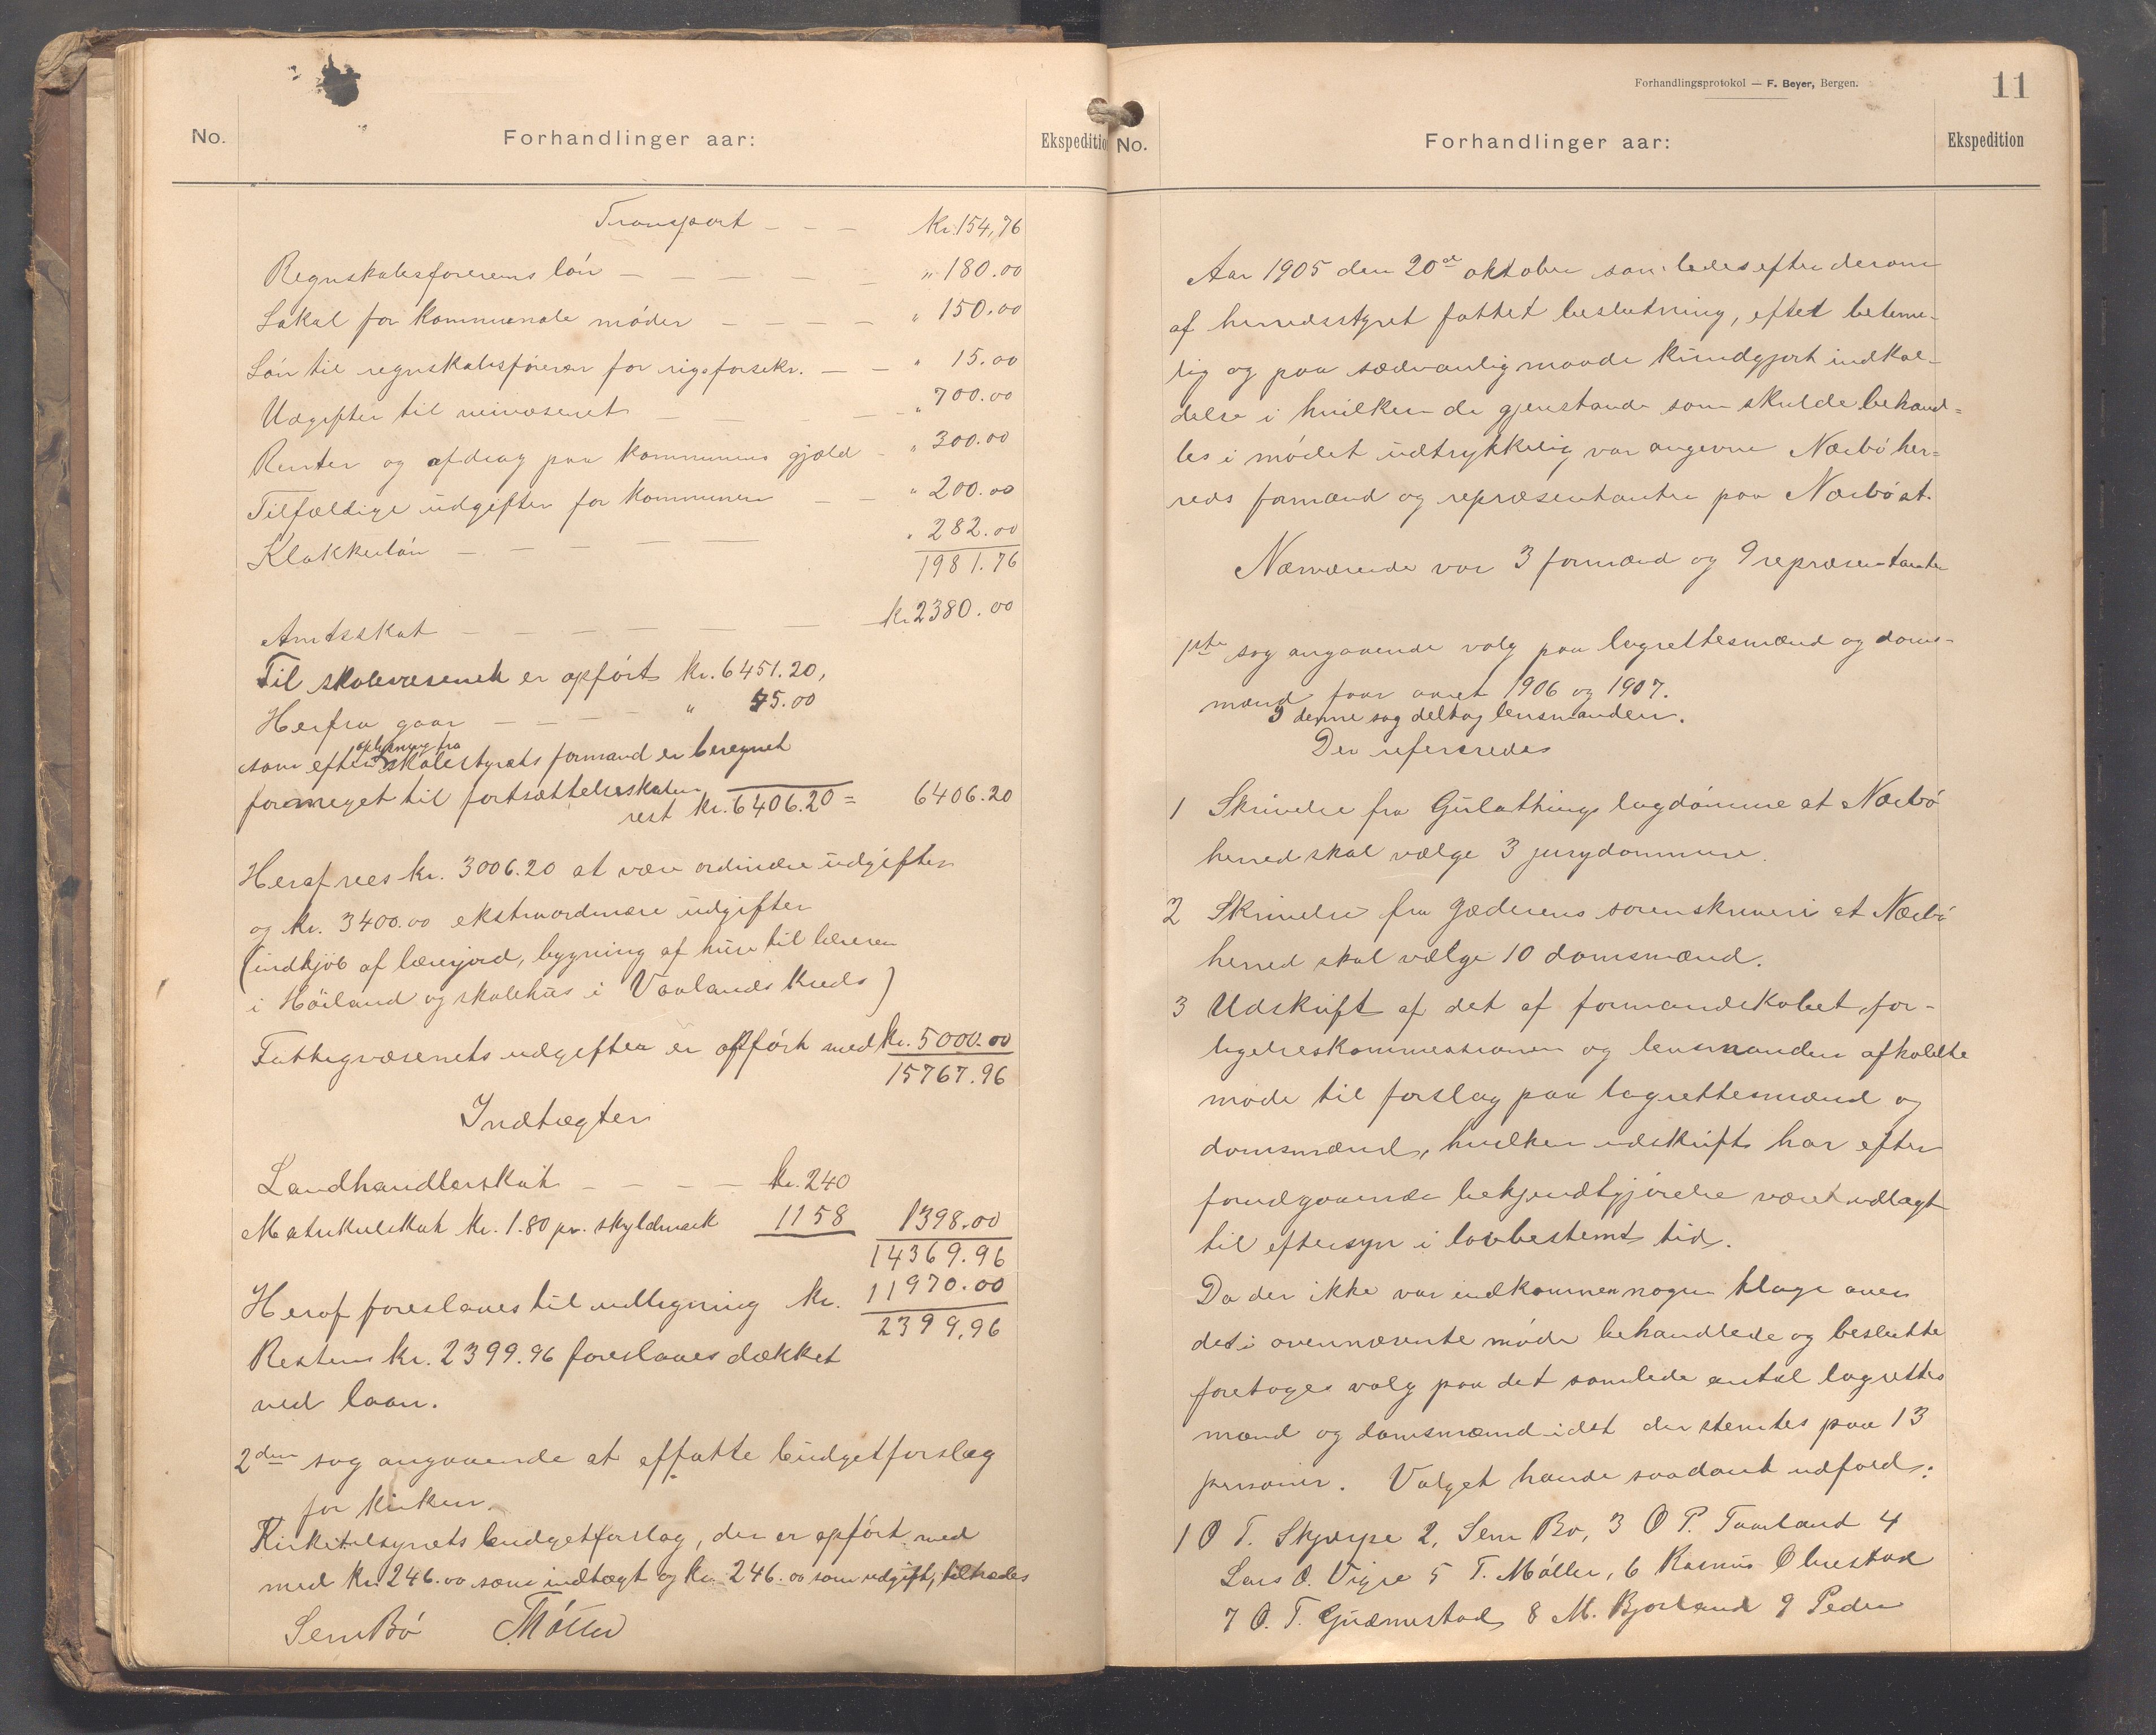 No.
Forhandlinger aar:
Ekspeditio
Transport - - - kr. 154,76
Regnskabsførerens løn - - - - - " 180.00
Lokal for kommunale møder - - - - " 150.00
Løn til regnskabsføreren for rigsforsikr. - - " 15.00
Udgifter til veivæsenet - - - - " 700.00
Renter og afdrag paa kommunens gjæld - " 300.00
Tilfældige udgifter for kommunen - - " 200.00
Klokkerløn - - - - - " 282.00
1981.76
Amtsskat - - - - - - - kr. 2380.00
Til skolevæsenet er opført kr. 6451.20,
Herfra gaar - - - - " 45.00
oplysning fra
som efter skolestyrets formand er beregnet
formeget til fortsættelsesskolen
rest kr. 6406.20 = 6406.20
Heraf sees kr. 3006.20 at være ordinære udgifter
og kr. 3400.00 ekstraordinære udgifter
(indkjøb af lærerjord, bygning af huse til læreren
i Høiland og skolehus i Vaulands kreds)
Fattigvæsenets udgifter er opført med kr. 5000.00
15767.96
Indtægter
Landhandlerskat - - - - kr. 240
Matrikulskat kr. 1.80 pr. skyldmark 1158 1398.00
14369.96
Heraf foreslaaes til udligning kr. 11970.00
2399.96
Resten kr. 2399.96 foreslaaes dækket
ved laan.
2den sag angaaende at affatte budgetforslag
for kirken.
Kirketilsynets budgetforslag, der er opført med
med kr. 246.00 som indtægt og kr. 246.00 som udgift, tiltrædes
Sem Bø T Møller
Forhandlingsprotokol — F. Beyer, Bergen.
11
No.
Forhandlinger aar:
Ekspedition
Aar 1905 den 20de oktober samledes efter derom
af herredsstyret fattet beslutning, efter betime-
lig og paa sædvanlig maade kundgjort indkal-
delse i hvilken de gjenstande som skulde behand=
les i mødet udtrykkelig var angivne Nærbø her=
reds formænd og repræsentanter paa Nærbø st.
Nærværende var 3 formænd og 9 repræsentanter
1ste sag angaaende valg paa lagrettesmænd og doms-
mænd for aaret 1906 og 1907.
I denne sag deltog lensmanden.
Der refereredes
1 Skrivelse fra Gulathings lagdømme at Nærbø
herred skal vælge 3 jurydommere.
2 Skrivelse fra Jæderens sorenskriveri at Nærbø
herred skal vælge 10 domsmænd.
3 Udskrift af det af formandskabet, for-
ligelseskommissionen og lensmanden afholdte
møde til forslag paa lagrettesmænd og
domsmænd, hvilken udskrift har efter
forudgaaende bekjendtgjørelse været udlagt
til eftersyn i lovbestemt tid.
Da der ikke var indkommen nogen klage over
det i ovennævnte møde behandlede og besluttede
foretoges valg paa det samlede antal lagrettes
mænd og domsmænd idet der stemtes paa 13
personer. Valget havde saadant udfald:
1 O T. Skjærpe 2, Sem Bø, 3 O P. Taarland 4
Lars O. Vigre 5 T. Møller, 6 Rasmus Obrestad
7 O. T. Grødemstad 8 M. Bjorland 9 Peder